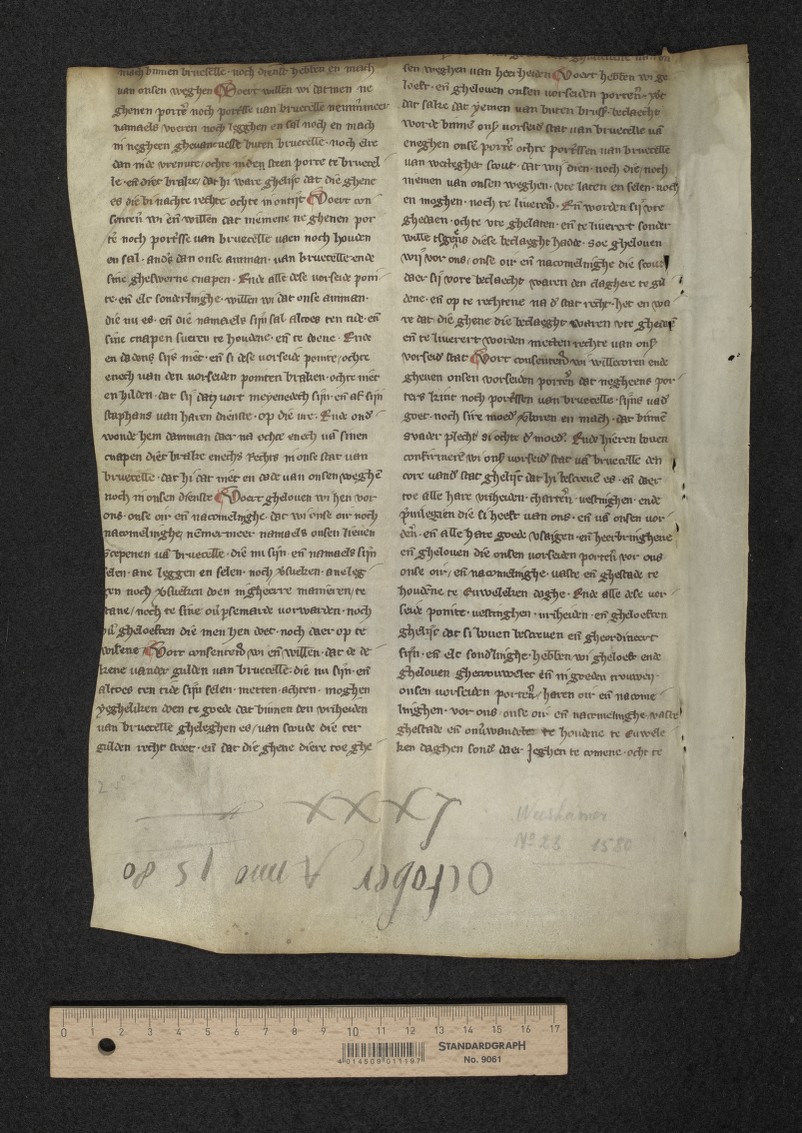 binnen bruesselle noch dienst hebben en mach
van onsen weghen Voert willen wi dat men ne
ghenen port̄e noch portⸯsse van bruecelle nēmⸯmeer
namaels voeren noch legghen en sal noch en mach
in negheen ghevancnesse buten bruecelle · noch else
dan inde vrenute / ochte inden steen porte te bruecel
le · en̄ diet brake / dat hi ware ghelijc dat die ghene
es die bi nachte rechte ochte in ontijt Voert con
senterē wi en̄ willen dat niemene ne ghenen por
tē noch portⸯsse van bruecelle vaen noch houden
en sal · andⸯs dan onse amman · van bruecelle · ende
sine ghesworne cnapen · Ende alle dese vorseide poin
te · en̄ elc sonderlinghe · willen wi dat onse amman ·
die nu es · en̄ die namaels sijn sal · altoes ten tide · en̄
sine cnapen sueren te houdene · en̄ te doene · Ende
en dadens sijs niet · en̄ si dese vorseide pointe / ochte
enech van den vorseiden pointen braken · ochte niet
en hilden · dat sij dats vort meyneedech sijn · en̄ af sijn
staphans van haren dienste · op die ure · Ende ond
wonde hem damman daer na ochte enech vā sinen
cnapen diet brake enechs rechts in onse stat van
bruecelle · dat hi dat niet en dade van onsen weghē
noch in onsen dienste Voert gheloven wi hen vor
ons · onse oir · en̄ nacomelinghe · dat wi onse oir noch
nacomelinghe / nēmermeer namaels onsen lieven
scepenen vā bruecelle · die nu sijn · en̄ namaels sijn
selen · ane leggen en selen · noch vsueken · ane leg
gen noch vsueken doen in gheerre manieren / te
/ noch te sine
ghelosten die men hen doet · noch daer op te
wisene Vort consenterē wi en̄ willen · dat de de
kene vander gulden van bruecelle · die nu sijn · en̄
altoes ten tide sijn selen · metten achten · moghen
yegheliken doen te goede dat binnen den vriheiden
van bruecelle gheleghen es / van scoude die ter
gulden recht steet · en̄ dat die ghene diere toe ghe
sen weghen van heerheiden Voert hebben wi ge
loeft · en̄ gheloven onsen vorseiden portēn · wēt
dat sake dat yemen van buten brusⸯ · beclaecht
worde binnē ons vorseidⸯ stat van bruecelle vā
eneghen onsē portē ochte portⸯssen van bruecelle
van wettegher scout · dat wij dien · noch die / noch
niemen van onsen weghen · vte laten en selen · noch
en moghen · noch te liveren · En̄ worden sij vte
ghedaen · ochte vte ghelaten · en̄ te livert sonder
wille tsgens diese beclaeght hadde · soe gheloven
wij vor ons / onse oir · en̄ nacomelinghe die scout
daer sij vore beclaecht waren den claghere te gul
dene · en̄ op te rechtene na dⸯ stat recht · het en wa
re dat die ghene die beclaeght waren vte ghedaē
en̄ te livert worden metten rechte van ons
vorseidⸯ stat Vort consenterē wi willecoren ende
gheven onsen vorseiden portēn dat negheens por
ters kint noch portⸯssen van bruecelle · sijns vadⸯ
goet · noch sire moedⸯ vloren en mach · dat binnē
svader plecht si ochte dⸯ moedⸯ. Ende hieren boven
confirmerē wi ons vorseidⸯ stat vā bruecelle den
core vandⸯ stat ghelijc dat hi bescreven es · en̄ daer
toe alle hare vriheiden · charterē · vestinghen · ende
pⸯvilegien die si heeft van ons · en̄ vā onsen vor
derē · en̄ alle hare goede vsaigen · en̄ heerbringhene
en̄ gheloven die onsen vorseiden portēn vor ons
onse oir / en̄ nacomelinghe · vaste en̄ ghestade te
houdene te euweleken daghe · Ende alle dese vor
seide pointe · vestinghen · vriheiden · en̄ gheloesten
ghelijc dat si boven bescreven en̄ gheordineert
sijn · en̄ elc sondⸯlinghe · hebben wi gheloeft ende
gheloven ghetrouwelec en̄ in goeden trouwen ·
onsen vorseiden portēn / haren oir en̄ nacome
linghen · vor ons · onse oir · en̄ nacomelinghe vaste
ghestade en̄ onvwandelt te houdene te euwele
ken daghen sondⸯ daer jeghen te comene · ocht te
Weishamer
No 28 1580
LXXX
October Anno 1580
0 1 2 3 4 5 6 7 8 9 10 11 12 13 14 15 16 17
STANDARDGRAPH
No. 9061
4 014509 011197